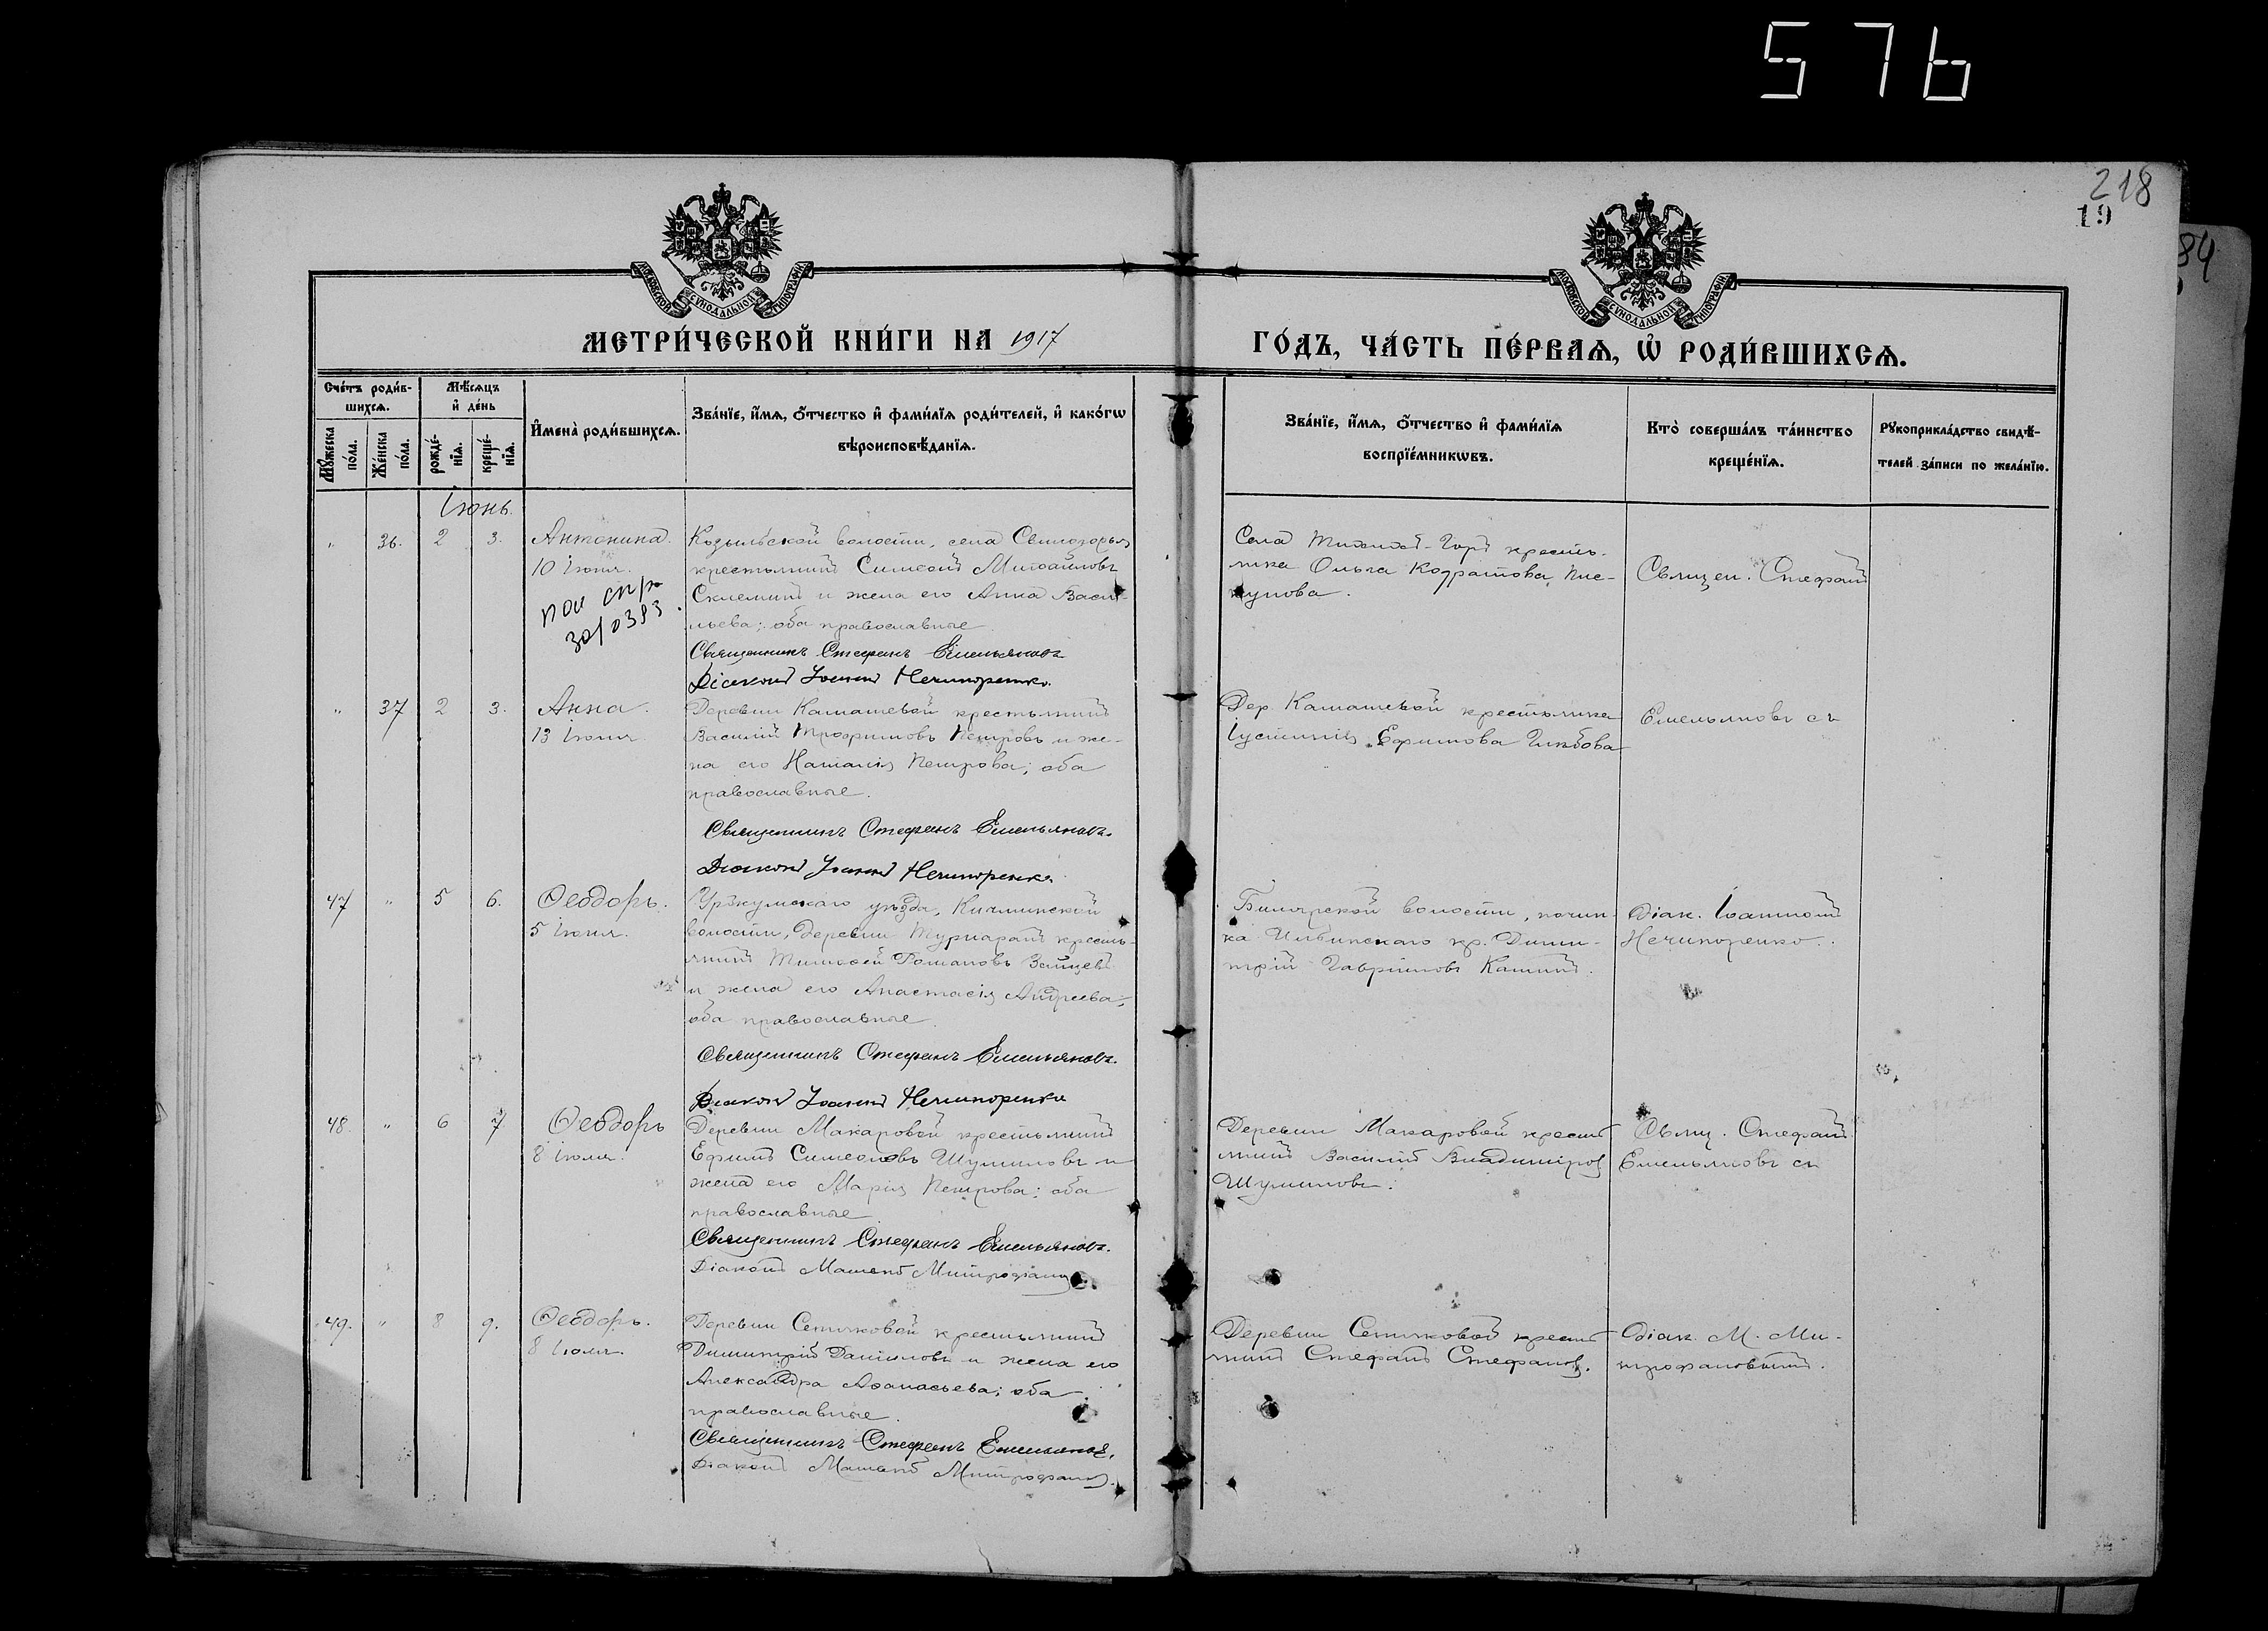 576
218
19
84
МОСКОВСКОЙ СѴНОДАЛЬНОЙ ТИПОГРАФІИ
МОСКОВСКОЙ СѴНОДАЛЬНОЙ ТИПОГРАФІИ
МЕТРИ́ЧЕСКОЙ КНИ́ГИ НА 1917
ГО́ДЪ, ЧА́СТЬ ПЕ́РВАѦ, Ѽ РОДИ́ВШИХСѦ.
Сче́тъ роди́в-
шихсѧ.
Мѣ́сѧцъ
и҆ де́нь
Мꙋ́жеска
по́ла.
Же́нска
по́ла.
рожде́-
нїѧ.
креще́-
нїѧ.
И҆мена̀ роди́вшихсѧ.
Зва́нїе, и҆́мѧ, ѻ҆́тчество и҆ фами́лїѧ роди́телей, и҆ како́гѡ
вѣроисповѣ́данїѧ.
Зва́нїе, и҆́мѧ, ѻ҆́тчество и҆ фами́лїѧ
воспрїе́мникѡвъ.
Кто̀ соверша́лъ та́инство
креще́нїѧ.
Рꙋкоприкла́дство свидѣ́-
телей за́писи по жела́нїю.
Іюнь
" 36. 2 3. Антонина.
10 Іюня.
Козыльской волости, села Свиногорья
крестьянинъ Симеонъ Михайловъ
и жена его Анна Васи-
льева; оба православные
Священникъ Стефанъ Емельяновъ
Діаконъ Іоаннъ Нечипоренко.
Села Горъ кресть-
янка Ольга Пис-
кунова.
Священ. Стефанъ
" 37 2 3. Анна.
13 Іюня
Деревни Камашевой крестьянинъ
Василій Трофимовъ Петровъ и же-
на его Наталія Петрова; оба
православные.
Священникъ Стефанъ Емельяновъ.
Діаконъ Іоаннъ Нечипоренко
Дер. Камашевой крестьянка
Іустинія Ефимова Глѣбова
Емельяновъ съ
47 " 5 6. Ѳеодоръ.
5 Іюня.
Уржумскаго уѣзда, Кичминской
волости, деревни крестья-
нинъ Тимофей Романовъ Зайцевъ
и жена его Анастасія Андреева;
оба православные
Священникъ Стефанъ Емельяновъ.
Діаконъ Іоаннъ Нечипоренко
Билярской волости, почин-
ка Ильинскаго кр. Дими-
трій Гавріиловъ
Діак. Іоанномъ
Нечипоренко.
48. " 6 7 Ѳеодоръ
8 Іюня.
Деревни Макаровой крестьянинъ
Ефимъ Симеоновъ Шумиловъ и
жена его Марія Петрова; оба
православные
Священникъ Стефанъ Емельяновъ.
Діаконъ
Деревни Макаровой крестья
нинъ Василій Владиміров
Шумиловъ.
Свящ. Стефанъ
Емельяновъ съ
49. " 8 9. Ѳеодоръ.
8 Іюня.
Деревни Сентяковой крестьянинъ
Димитрій Даниловъ и жена его
Александра Аѳанасьева; оба
православные.
Священникъ Стефанъ Емельяновъ.
Діаконъ
Деревни Сентяковой крестья
нинъ Стефанъ Стефанов.
Діак. М. Ми-
трофановымъ.